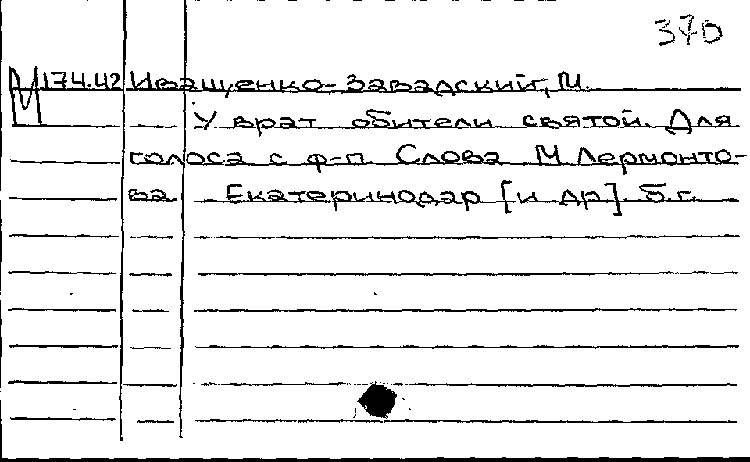 370
М 174.42 Иващенко-Завадский, М.
У врат обители святой. Для
голоса с ф-п. Слова М. Лермонто-
ва. Екатеринодар [и др]. б.г.